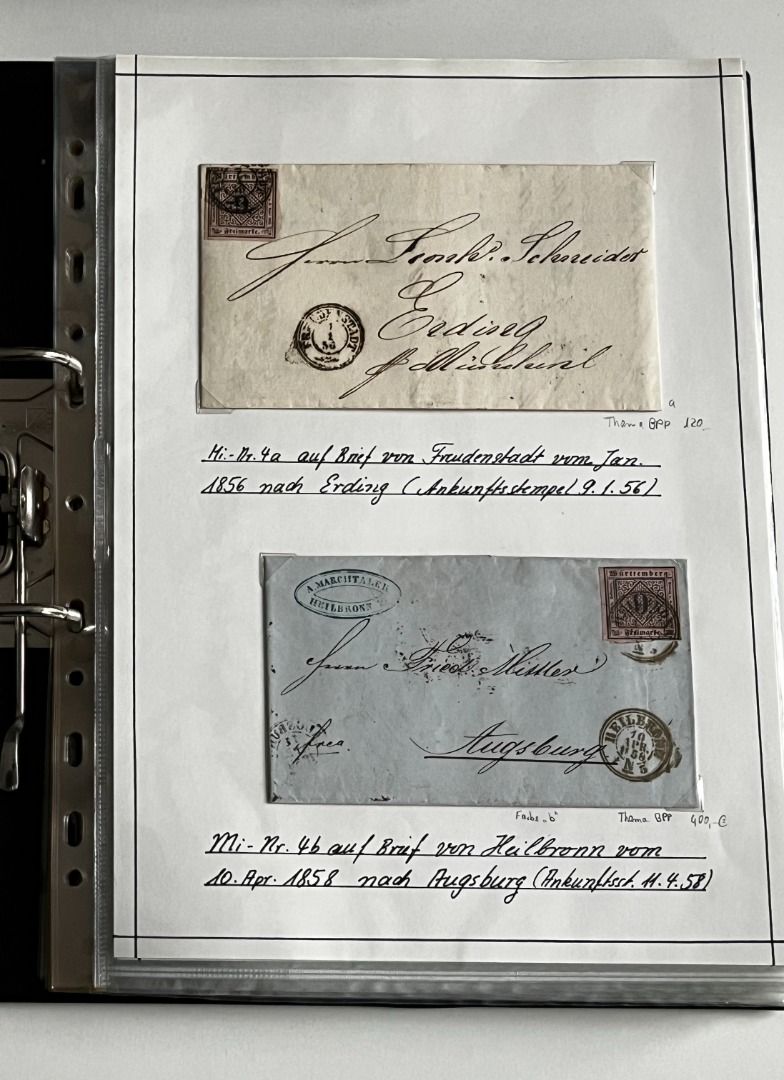 Württemb
Freimarke.
Herrn Leonh. Schneider
Erding
FREUDENSTADT
1
1
56
a
Thoma BPP 120_
Mi.-Nr. 4a auf Brief von Freudenstadt vom Jan.
1856 nach Erding (Ankunftsstempel 9.1.56)
A. MARCHTALER
HEILBRONN
Württemberg
Freimarke.
Herrn Fried. Mittler
Augsburg
HEILBRONN
10
APR.
58
N 3
Farbe „b“
Thoma BPP 400,-€
Mi-Nr. 4b auf Brief von Heilbronn vom
10. Apr. 1858 nach Augsburg (Ankunftsst. 11.4.58)